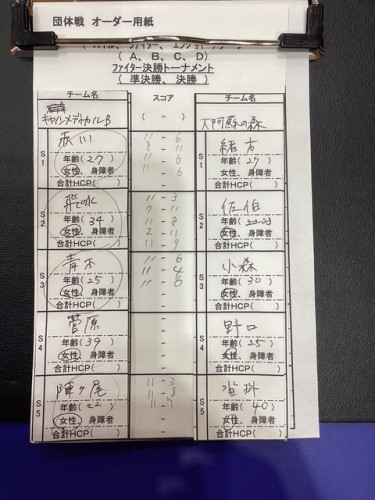 団体戦 オーダー用紙
( A、 B、 C、 D)
ファイター決勝トーナメント
( 準決勝、 決勝 )
チーム名 スコア チーム名
キヤノンメディカルB ( - ) 大阿蘇の森
S1 赤川 11 - 6 S1 緒方
8 - 11
年齢(27) 11 - 6 年齢(27)
女性、身障者 11 - 6 女性、身障者
合計HCP( ) - 合計HCP( )
S2 11 - 3 S2 佐伯
7 - 11
年齢(34) 11 - 8 年齢( )
女性、身障者 2 - 11 女性、身障者
合計HCP( ) 11 - 9 合計HCP( )
S3 青木 11 - 6 S3 小森
11 - 4
年齢(25) 11 - 6 年齢(30)
女性、身障者 - 女性、身障者
合計HCP( ) - 合計HCP( )
S4 菅原 - S4 野口
年齢(39) - 年齢(25)
女性、身障者 - 女性、身障者
合計HCP( ) - 合計HCP( )
S5 陣ヶ尾 11 - 3 S5
11 - 8
年齢(22) 11 - 7 年齢(40)
女性、身障者 - 女性、身障者
合計HCP( ) - 合計HCP( )